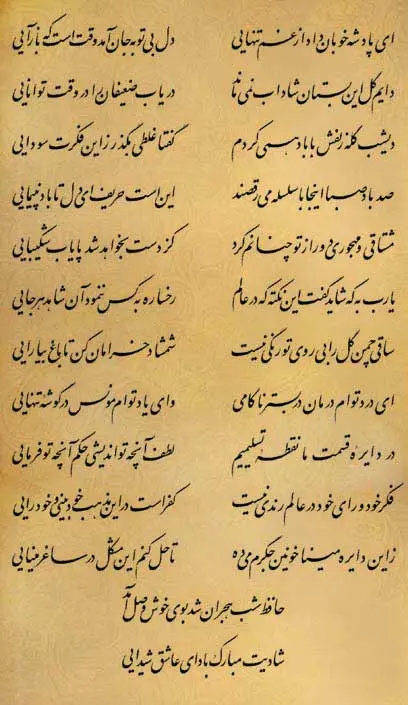 ای پادشه خوبان داد از غم تنهایی دل بی تو به جان آمد وقت است که بازآیی
دایم گل این بستان شاداب نمی ماند دریاب ضعیفان را در وقت توانایی
دیشب گله زلفش با باد همی کردم گفتا غلطی بگذر زاین فکرت سودایی
صد باد صبا اینجا با سلسله می رقصند این است حریف ای دل تا باد نپیمایی
مشتاقی و مهجوری دور از تو چنانم کرد کز دست بخواهد شد پایاب شکیبایی
یارب به که شاید گفت این نکته که در عالم رخساره به کس ننمود آن شاهد هرجایی
ساقی چمن گل را بی روی تو رنگی نیست شمشاد خرامان کن تا باغ بیارایی
ای درد توام درمان در بستر ناکامی وای یاد توام مونس در گوشه تنهایی
در دایره قسمت ما نقطه تسلیمیم لطف آنچه تو اندیشی حکم آنچه تو فرمایی
فکر خود و رای خود در عالم رندی نیست کفر است در این مذهب خودبینی و خودرایی
زاین دایره مینا خونین جگرم می ده تا حل کنم این مشکل در ساغر مینایی
حافظ شب هجران شد بوی خوش وصل آمد
شادیت مبارک باد ای عاشق شیدایی